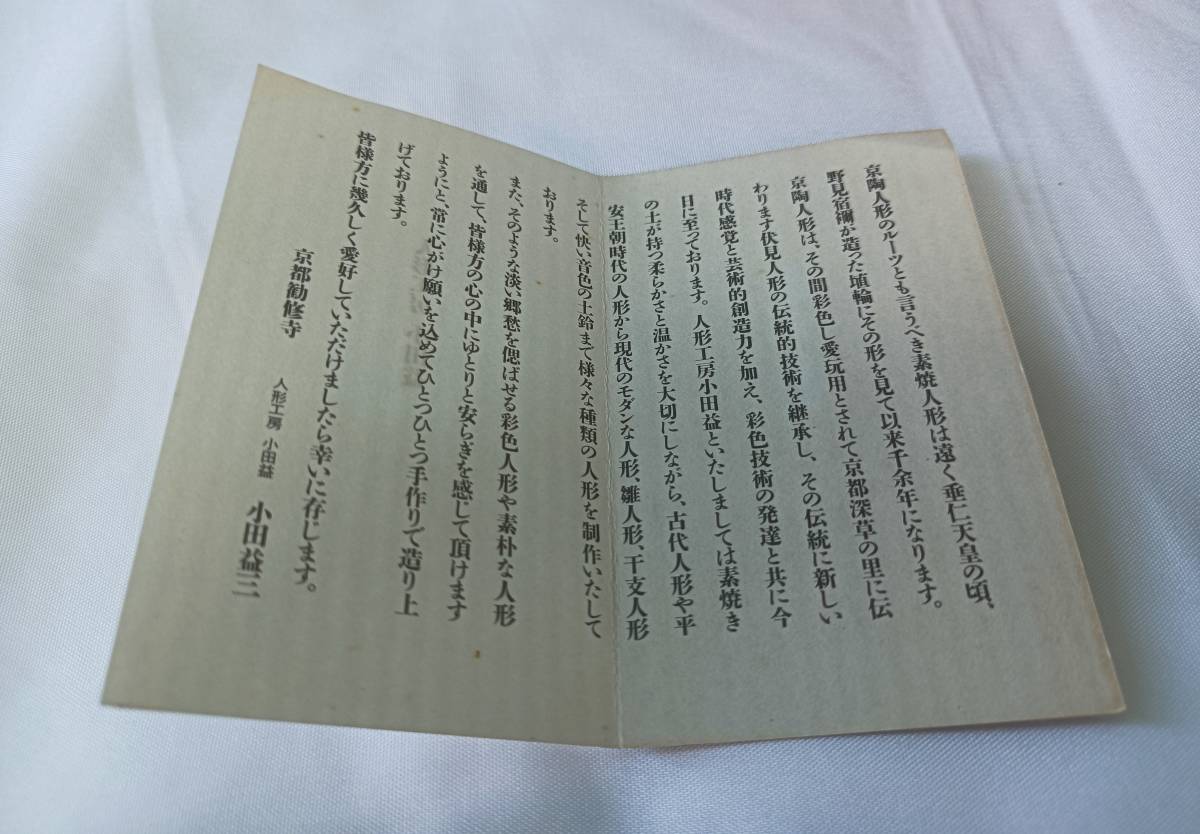 京陶人形のルーツとも言うべき素焼人形は遠く垂仁天皇の頃、
野見宿禰が造った埴輪にその形を見て以来千余年になります。
京陶人形は、その間彩色し愛玩用とされて京都深草の里に伝
わります伏見人形の伝統的技術を継承し、その伝統に新しい
時代感覚と芸術的創造力を加え、彩色技術の発達と共に今
日に至っております。人形工房小田益といたしましては素焼き
の土が持つ柔らかさと温かさを大切にしながら、古代人形や平
安王朝時代の人形から現代のモダンな人形、雛人形、干支人形
そして快い音色の土鈴まで様々な種類の人形を制作いたして
おります。
また、そのような淡い郷愁を偲ばせる彩色人形や素朴な人形
を通して、皆様方の心の中にゆとりと安らぎを感じて頂けます
ようにと、常に心がけ願いを込めてひとつひとつ手作りで造り上
げております。
皆様方に幾久しく愛好していただけましたら幸いに存じます。
京都勧修寺
人形工房 小田益 小田益三